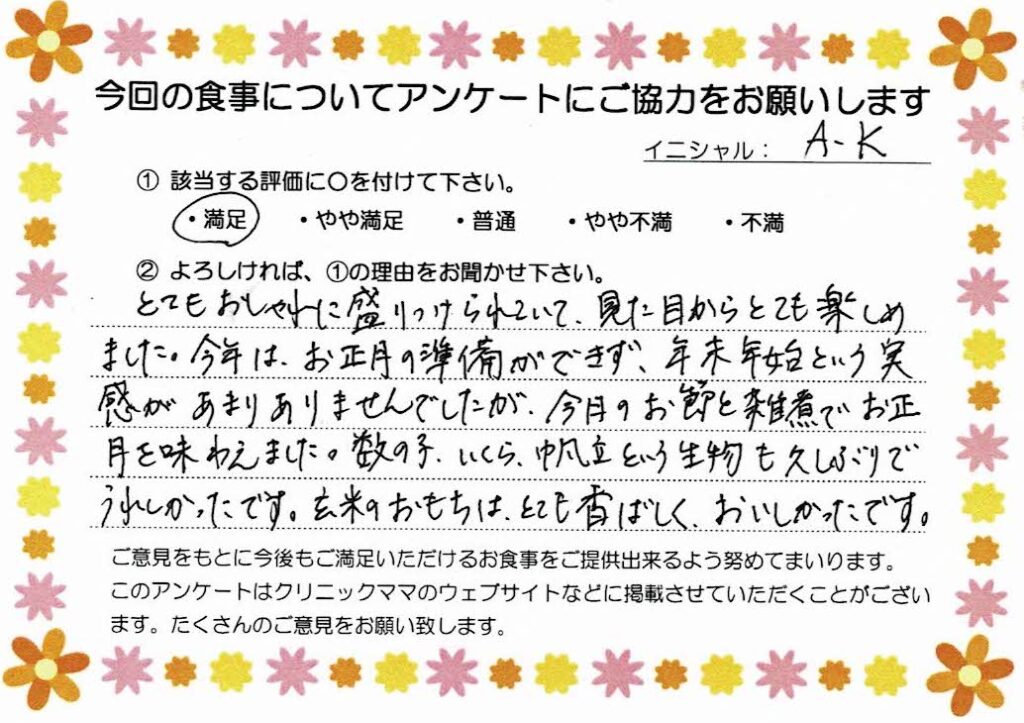 今回の食事についてアンケートにご協力をお願いします
イニシャル： A-K
① 該当する評価に〇を付けて下さい。
・満足 ・やや満足 ・普通 ・やや不満 ・不満
② よろしければ、①の理由をお聞かせ下さい。
とてもおしゃれに盛りつけられていて、見た目からとても楽しめ
ました。今年は、お正月の準備ができず、年末年始という実
感があまりありませんでしたが、今月のお節と雑煮でお正
月を味わえました。数の子、いくら、帆立という生物も久しぶりで
うれしかったです。玄米のおもちは、とても香ばしく、おいしかったです。
ご意見をもとに今後もご満足いただけるお食事をご提供出来るよう努めてまいります。
このアンケートはクリニックママのウェブサイトなどに掲載させていただくことがござい
ます。たくさんのご意見をお願い致します。